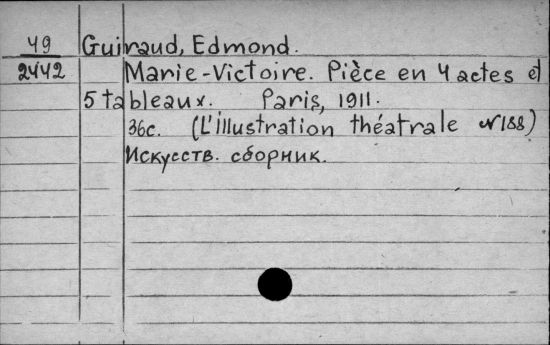 49 Guiraud, Edmond.
2442 Marie-Victoire. Pièce en 4 actes et
5 tableaux. Paris, 1911.
36c. (L'illustration théatrale №188)
Искусств. сборник.